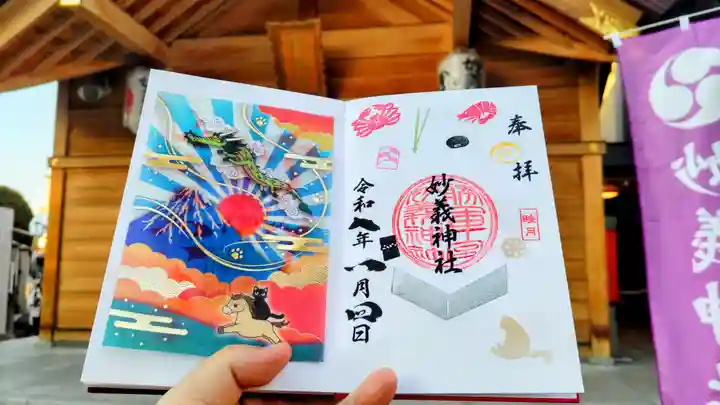 奉拝
睦月
妙義神社
令和八年一月四日
妙義神